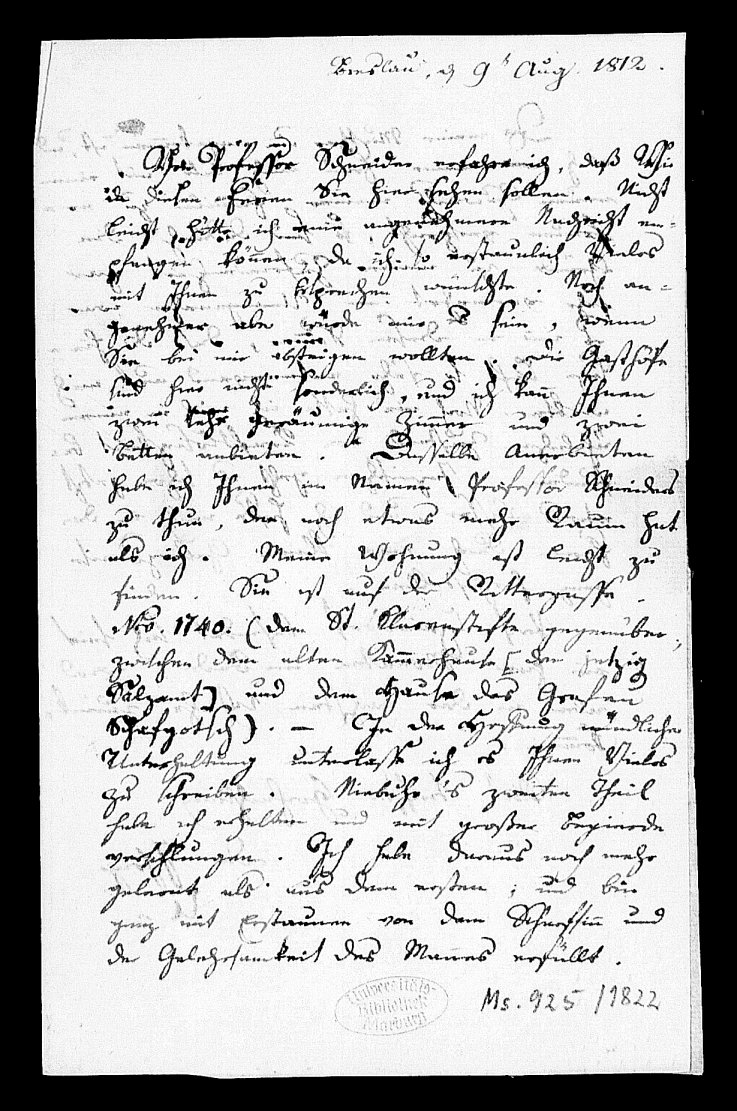 Breslau, d 9t Aug. 1812.
Von Professor Schneider erfahre ich, daß Wir
in diesen Ferien Sie hier sehen sollen. Nicht
leicht hätte ich eine angenehmere Nachricht em-
pfangen können, da ich so erstaunlich Vieles
mit Ihnen zu besprechen wünschte. Noch an-
genehmer aber würde mir es sein, wenn
Sie bei mir absteigen wollten. Die Gasthöfe
sind hier nicht sonderlich, und ich kann Ihnen
zwei sehr geräumige Zimmer und zwei
Betten anbieten. Dasselbe Anerbieten
habe ich Ihnen im Namen Professor Schneiders
zu thun, der noch etwas mehr Raum hat
als ich. Meine Wohnung ist leicht zu
finden. Sie ist auf der Rittergasse
Nro. 1740. (dem St. Klarenstifte gegenüber,
zwischen dem alten Kammerhause [der jetzig
Salzamt] und dem Hause des Grafen
Schafgotsch). — In der Hoffnung mündlicher
Unterhaltung unterlasse ich es Ihnen Vieles
zu schreiben. Niebuhr's zweiten Theil
habe ich erhalten und mit großer Begierde
verschlungen. Ich habe daraus noch mehr
gelernt als aus dem ersten; und bin
ganz mit Erstaunen von dem Scharfsinn und
der Gelehrsamkeit des Mannes erfüllt.
Universitäts-
Bibliothek
Marburg
Ms. 925/1822